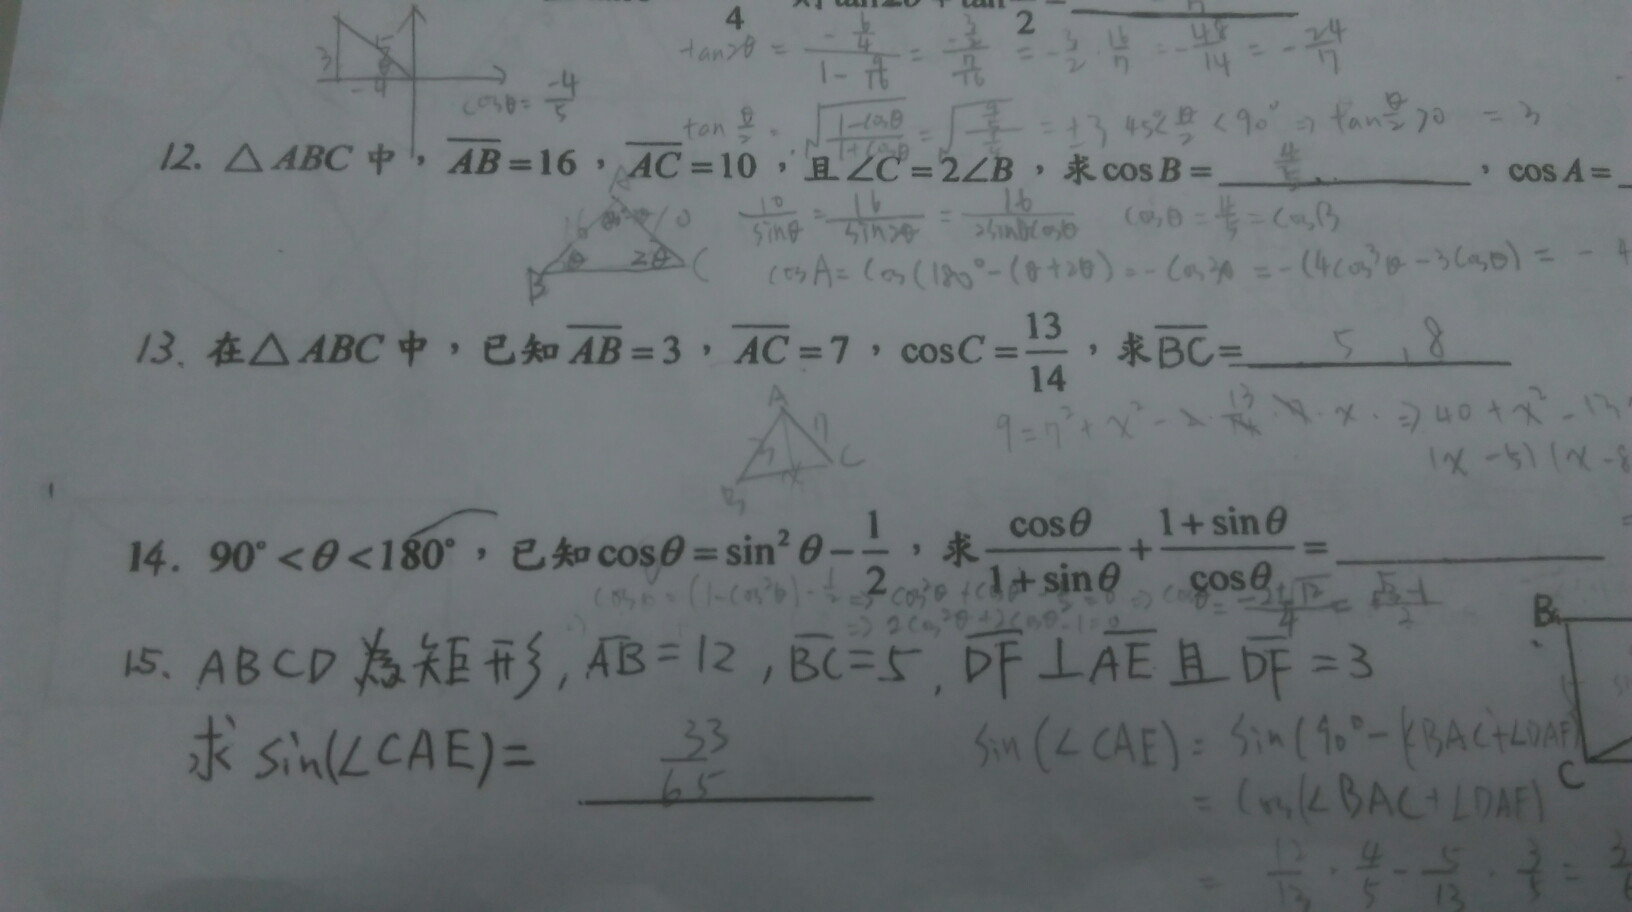 4 2
tan2θ = = = -3/2 · 16/7 = -48/14 = -24/7
3 5 -4 cosθ = -4/5
tan θ/2 = √(1-cosθ)/(1+cosθ) = = ±3 45°< θ/2 < 90° ⇒ tan θ/2 > 0 = 3
12. △ABC 中，AB=16，AC=10，且∠C=2∠B，求cosB= 4/5，cosA=
A 16 10 B θ 2θ C
10/sinθ = 16/sin2θ = 16/2sinθcosθ cosθ = 4/5 = cosB
cosA = cos(180°-(θ+2θ)) = -cos3θ = -(4cos³θ-3cosθ) = -
13. 在△ABC中，已知AB=3，AC=7，cosC=13/14，求BC= 5, 8
A 3 7 B x C
9=7²+x²-2·13/14·7·x ⇒ 40+x²-13
(x-5)(x-8
14. 90°<θ<180°，已知cosθ=sin²θ-1/2，求 cosθ/(1+sinθ) + (1+sinθ)/cosθ =
cosθ=(1-cos²θ)-1/2 ⇒ cosθ = (-2+√12)/4 = (√3-1)/2
⇒ 2cos²θ+2cosθ-1=0
15. ABCD為矩形, AB=12, BC=5, DF⊥AE且DF=3
求 sin(∠CAE)= 33/65
B C
sin(∠CAE) = sin(90°-(∠BAC+∠DAF)
= cos(∠BAC+∠DAF)
= 12/13 · 4/5 - 5/13 · 3/5 =